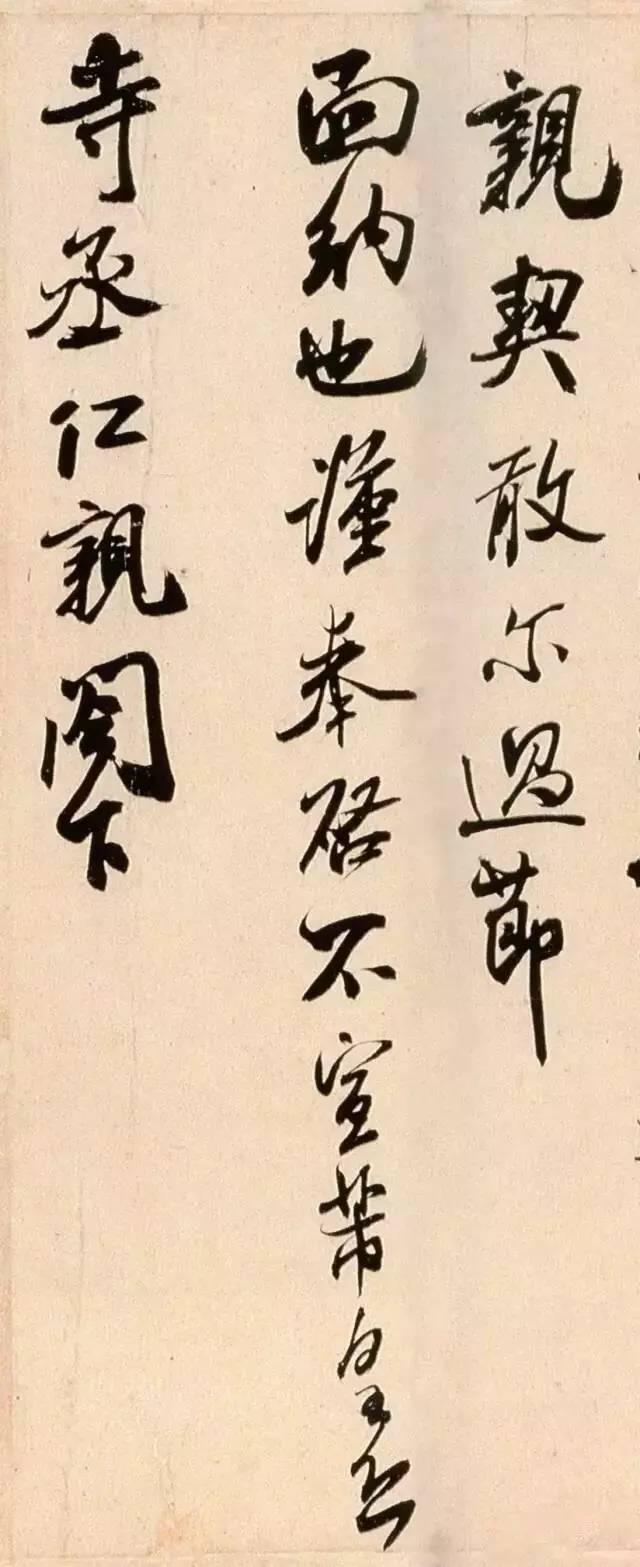 親契敢尔過節
面納也謹奉啓不宣芾皇恐
寺丞仁親閣下